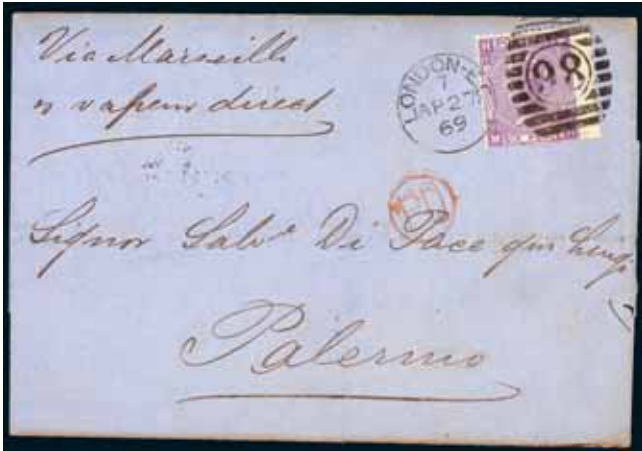 Via Marseille
vapeur direct
LONDON-E
7
AP 27
69
98
PD
Signor Salv.e Di Pace qm Luigi
Palermo